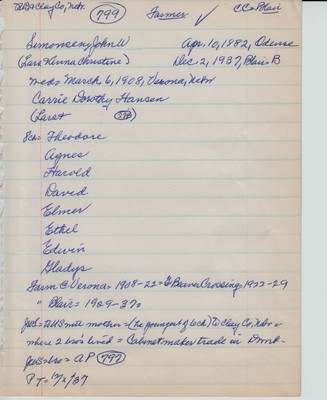 To US = Clay Co, Nebr. 799 Farmer ✓ CC = Blair
Simonsen, John W Apr. 10, 1882, Odense
(Lars + Kenna Christine) Dec. 2, 1937, Blair - B
med = March 6, 1908, Verona, Nebr
Carrie Dorothy Hansen
(Lars +
Ich = Theodore
Agnes
Harold
David
Elmer
Ethel
Edwin
Gladys
Farm C Verona = 1908-22 = Beaver Crossing = 1922-29
" Blair = 1929-37 =
to US with mother = (the youngest of 6 ch) to Clay Co, Nebr =
where 2 bros lived = Cabinetmaker trade in Dmk -
bro = A P 797
P T = 12/2/37